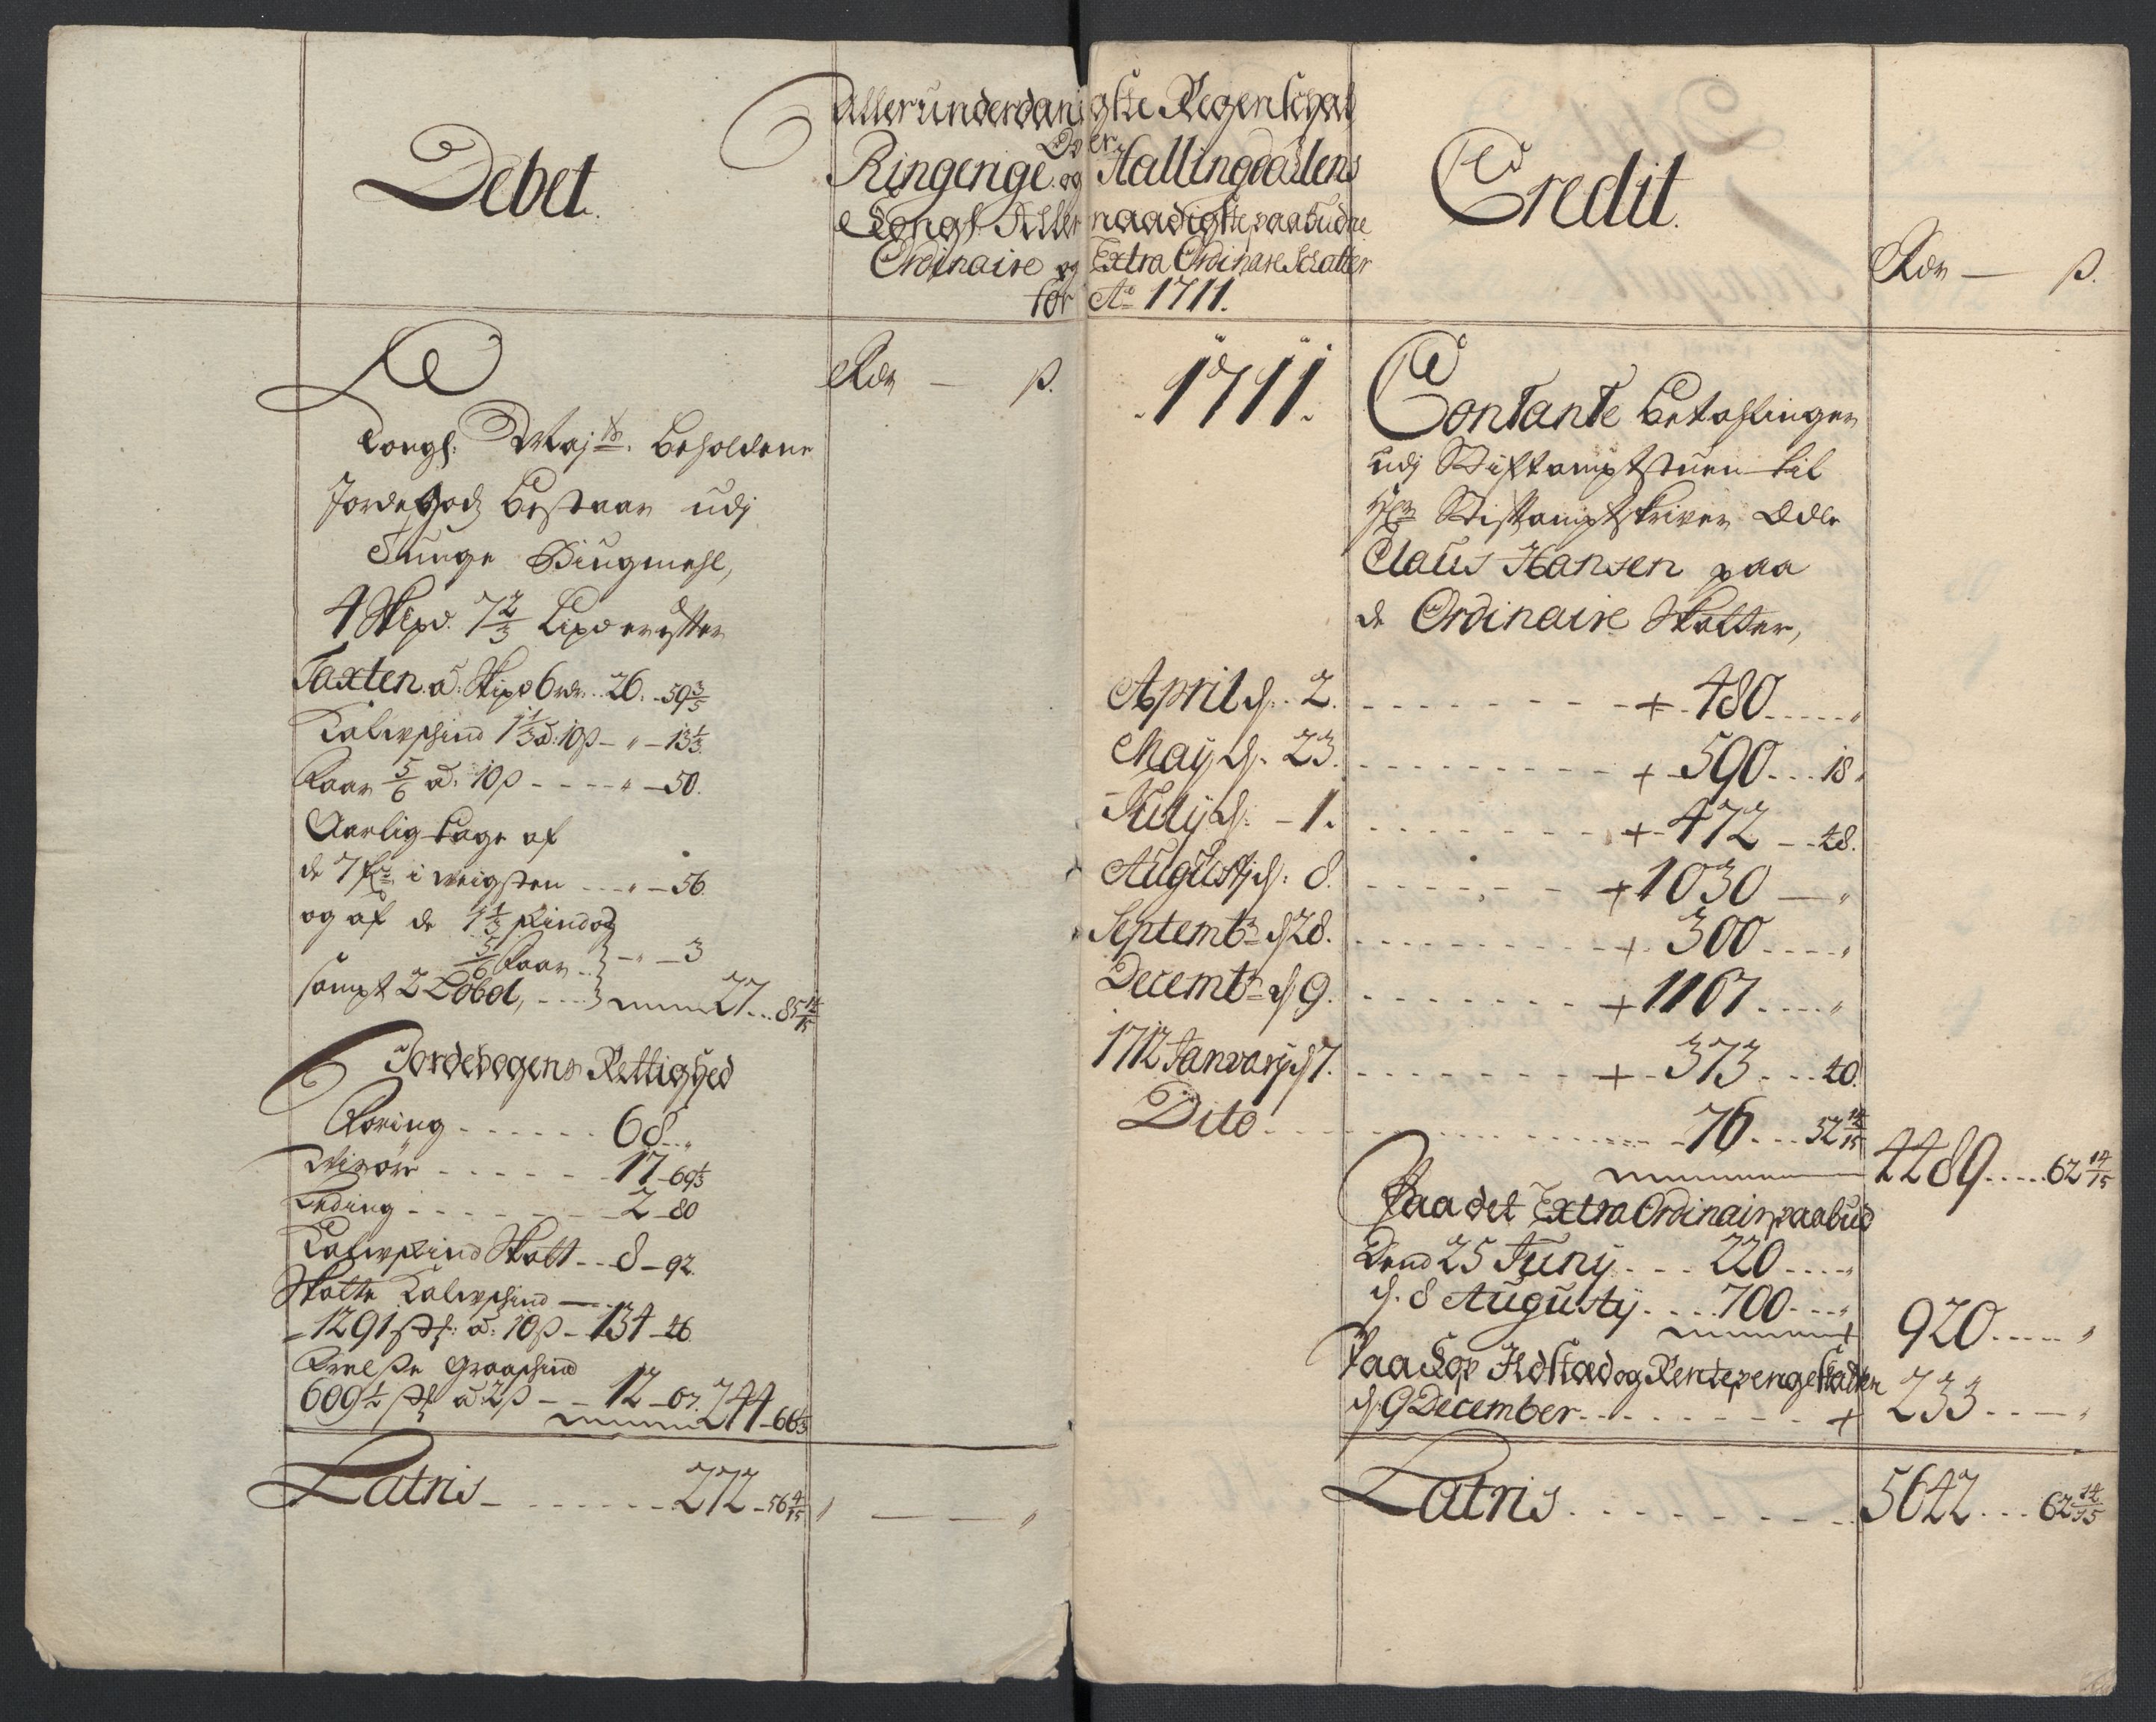 Debet.
Allerunderdanigste Regenschab
Over
Ringerige og Hallingdalens
Kongl. Allernaadigste paabudne
Ordinaire og Extra Ordinare Schatter
for Ao 1711.
Credit.
Rdr — ß.
Rdr — ß.
Kongl: Majts. beholdene
Jordegods bestaar udj
Tunge Biugmehl,
4 Skipd. 7 2/3 Lispd er efter
Taxten a: Skipd 6 rdr.. 26. - 59 3/5
Kalvschind 1 1/3 a: 10 ß - „ - 13 1/3
Faar 5/6 a: 10 ß - - - - „ - 50.
Aarlig tage af
de 7 i - - - „ - 56
og af de 1 1/3 skind og
5/6 Faar .. - „ - 3
sampt 2 - - - 27 .. 85 14/15
Jordebogens Rettighed
Foring - - - - - - 68 .. „
Visøre - - - - - - 17 - 69 1/3
Leding - - - - - - 2 - 80
Kalvskind Skatt - - 8 - 92.
Skatte Kalvschind —
- 1291 st: a: 10 ß - 134 - 46
Graaschind
609 1/2 st a: 2 ß - - 12 - 67. 244 - 66 1/3
Latris - - - - - - - 272 - 56 4/15 „ — — „
1711.
Contante betahlinger
udj Stiftamptstuen til
Hr Stiftamptskriver Edle
Claus Hansen paa
de Ordinaire Skatter,
April d. 2. - - - - - - - + 480 - - - - „
Maij d. 23. - - - - - - - + 590 - - - 18 „
Julij d: - 1. - - - - - - - + 472 - - 48.
Augustij d: 8. - - - - - - - + 1030 — „
Septembr d 28. - - - - - - - + 300 - - - - „
Decembr d 9. - - - - - - - + 1167 - - - - „
1712 Januarij d 7. - - - - - - - + 373 - - - 40.
Dito - - - - - - - 76 - - - 52 14/15
4489 - - - - 62 14/15
Paa det Extra Ordinair paabud
Dend 25 Junij - - - 220 - - - - „
d. 8 Augustij - - - 700 - - - „
+ 920 - - - - „
Paa Kop Ildsted og Rentepenge skatten
d. 9 December - - - - - - - + 233 - - — „
Latris - - - - - - - - - 5642 - - - 62 14/15